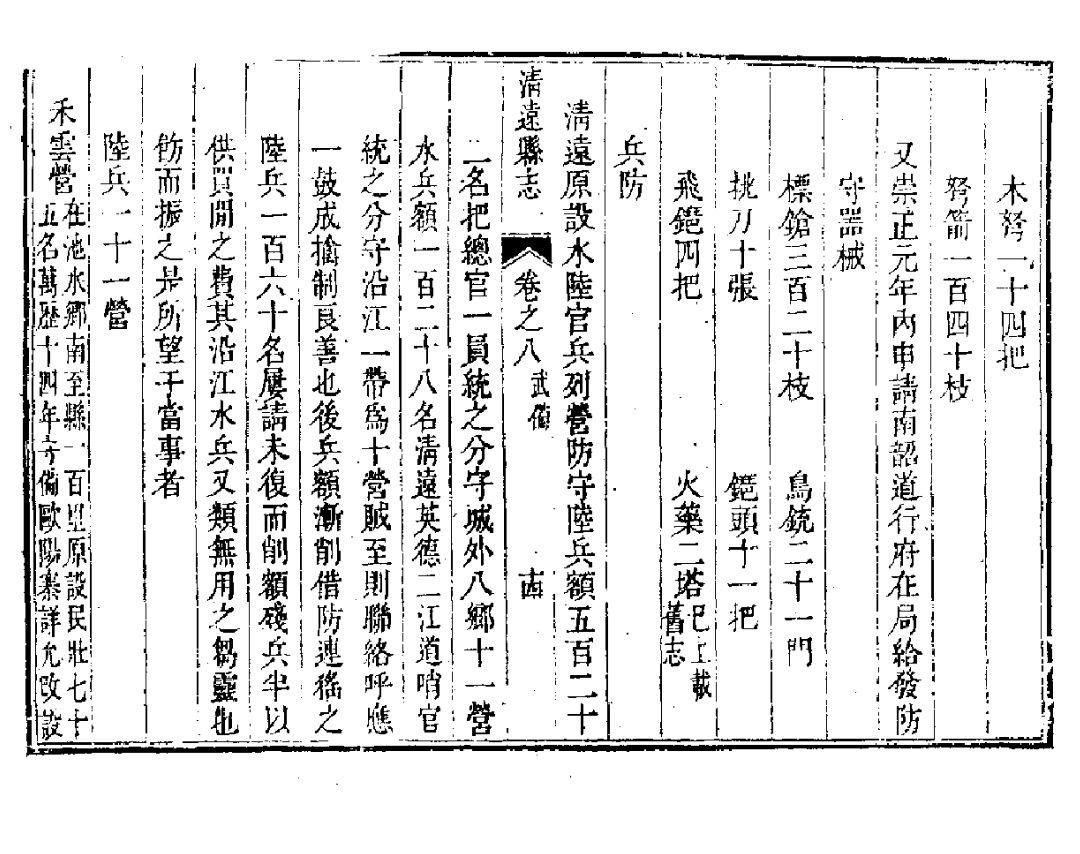 木弩一十四把
弩箭一百四十枝
又崇正元年內申請南韶道行府在局給發防
守器械
標鎗三百二十枝　鳥銃二十一門
挑刀十張　鎲頭十一把
飛鎲四把　火藥二塔已上載舊志
兵防
清遠原設水陸官兵列營防守陸兵額五百二十
清遠縣志　卷之八　武備　十四
二名把總官一員統之分守城外八鄉十一營
水兵額一百二十八名清遠英德二江道哨官
統之分守沿江一帶爲十營賊至則聯絡呼應
一鼓成擒制良善也後兵額漸削借防連徭之
陸兵一百六十名屢請未復而削額殘兵半以
供買閒之費其沿江水兵又類無用之芻靈也
飭而振之是所望于當事者
陸兵一十一營
禾雲營在池水鄉南至縣一百里原設民壯七十
五名萬歷十四年守備歐陽寨詳允改設